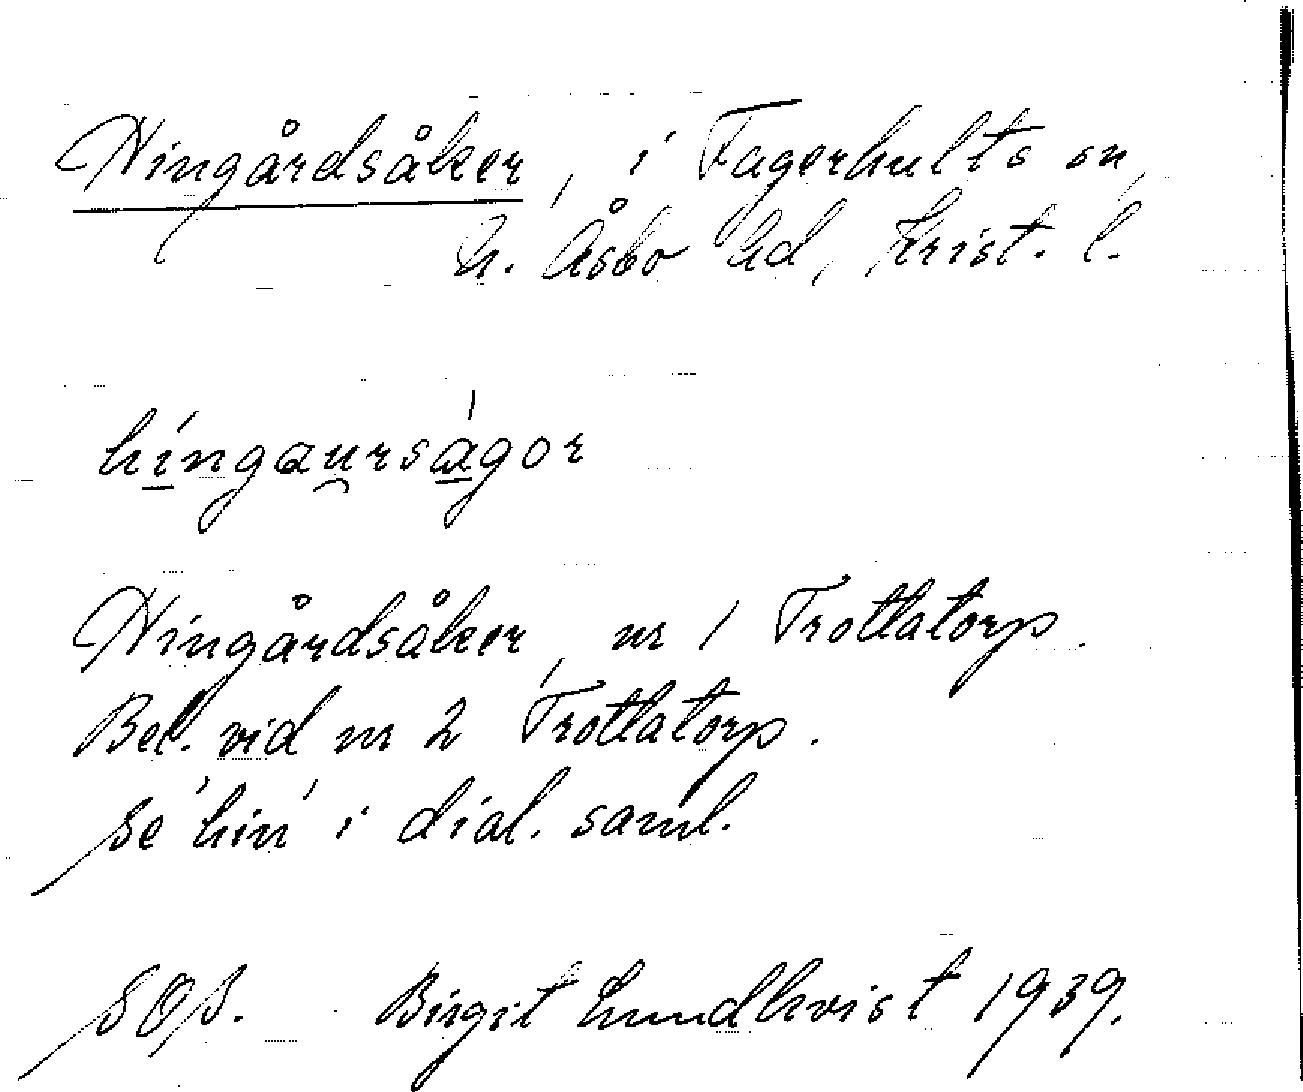 Hingårdsåker, i Fagerhults sn,
N. Åsbo hd, Krist. l.
hi̱ngau̯rsa̱gor
Hingårdsåker, nr 1 Trottatorp.
Bel. vid nr 2 Trottatorp.
Se 'hin' i dial. saml.
SOS. Birgit Lundkvist 1939.